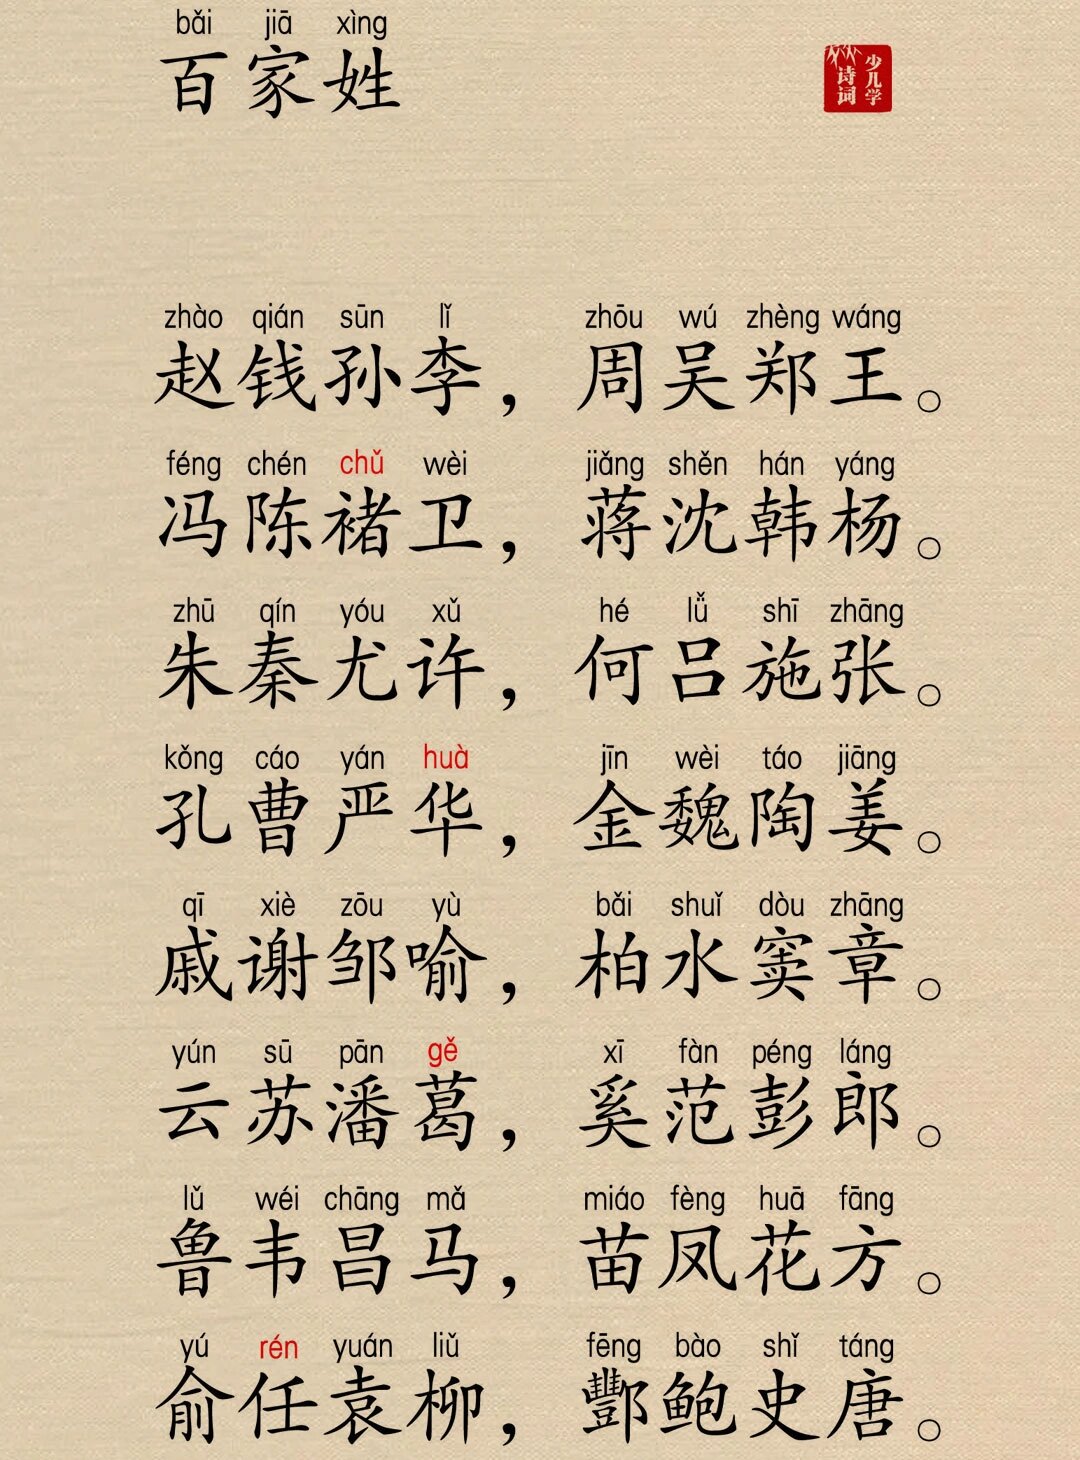 bǎi jiā xìng
百家姓
少儿学
诗词
zhào qián sūn lǐ zhōu wú zhèng wáng
赵钱孙李，周吴郑王。
féng chén chǔ wèi jiǎng shěn hán yáng
冯陈褚卫，蒋沈韩杨。
zhū qín yóu xǔ hé lǚ shī zhāng
朱秦尤许，何吕施张。
kǒng cáo yán huà jīn wèi táo jiāng
孔曹严华，金魏陶姜。
qī xiè zōu yù bǎi shuǐ dòu zhāng
戚谢邹喻，柏水窦章。
yún sū pān gě xī fàn péng láng
云苏潘葛，奚范彭郎。
lǔ wéi chāng mǎ miáo fèng huā fāng
鲁韦昌马，苗凤花方。
yú rén yuán liǔ fēng bào shǐ táng
俞任袁柳，酆鲍史唐。